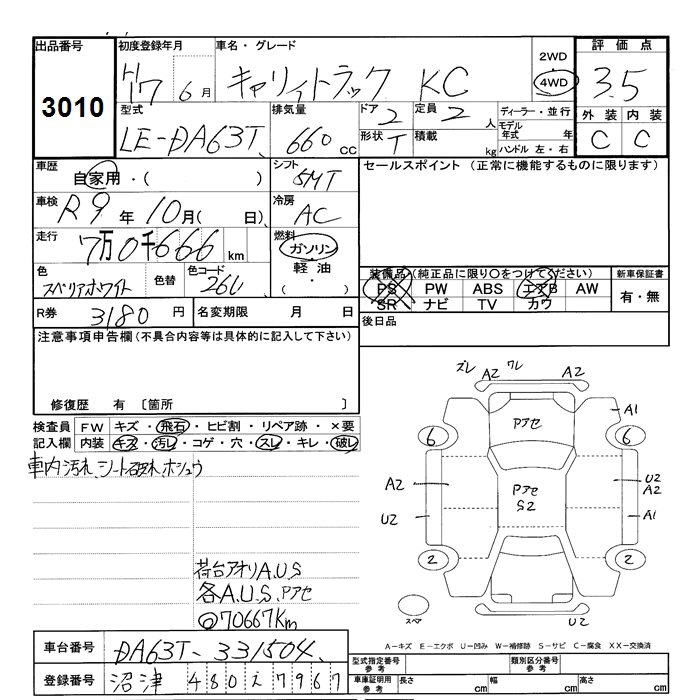 出品番号 3010
初度登録年月 H17 6月
車名・グレード キャリイトラック KC
2WD 4WD
評価点 3.5
外装 C 内装 C
型式 LE-DA63T
排気量 660 cc
ドア 2
形状 T
定員 2 人
積載 kg
ディーラー・並行
モデル年式 年
ハンドル 左・右
車歴 自家用・( )
シフト 5MT
セールスポイント (正常に機能するものに限ります)
車検 R9年 10月( 日)
冷房 AC
走行 7万0千666 km
燃料 ガソリン・軽油・( )
色 スペリアホワイト
色替
色コード 26U
装備品(純正品に限り○をつけてください)
PS PW ABS エアB AW
SR ナビ TV カワ
新車保証書 有・無
R券 3180 円
名変期限 月 日
後日品
注意事項申告欄(不具合内容等は具体的に記入して下さい)
修復歴 有 〔箇所 〕
検査員記入欄
FW キズ・飛石・ヒビ割・リペア跡・×要
内装 キズ・汚レ・コゲ・穴・スレ・キレ・破レ
車内汚れ、シート破れ、ホシュウ
荷台アオリA.U.S
各A.U.S、Pアセ
◎70667Km
ズレ A2 ワレ A2
Pアセ
A1
6 6
A2
Pアセ
S2
U2
A2
U2
A1
2 2
スペア
U2
A-キズ E-エクボ U-凹み W-補修跡 S-サビ C-腐食 XX-交換済
車台番号 DA63T-331504
登録番号 沼津 480 え 7967
型式指定番号 参考
類別区分番号 参考
車庫証明用 参考
長さ cm 幅 cm 高さ cm